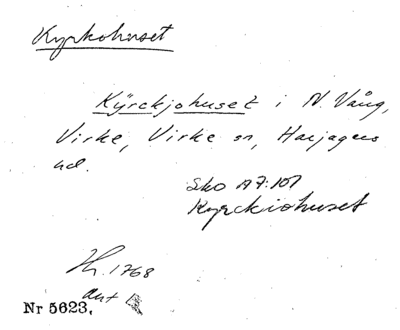 Kyrkohuset
Kÿrckjohuset i N. Vång,
Virke, Virke sn, Harjagers
hd.
Sko A7:107
Kyrckiohuset
Lh. 1768
avt
Nr 5623.